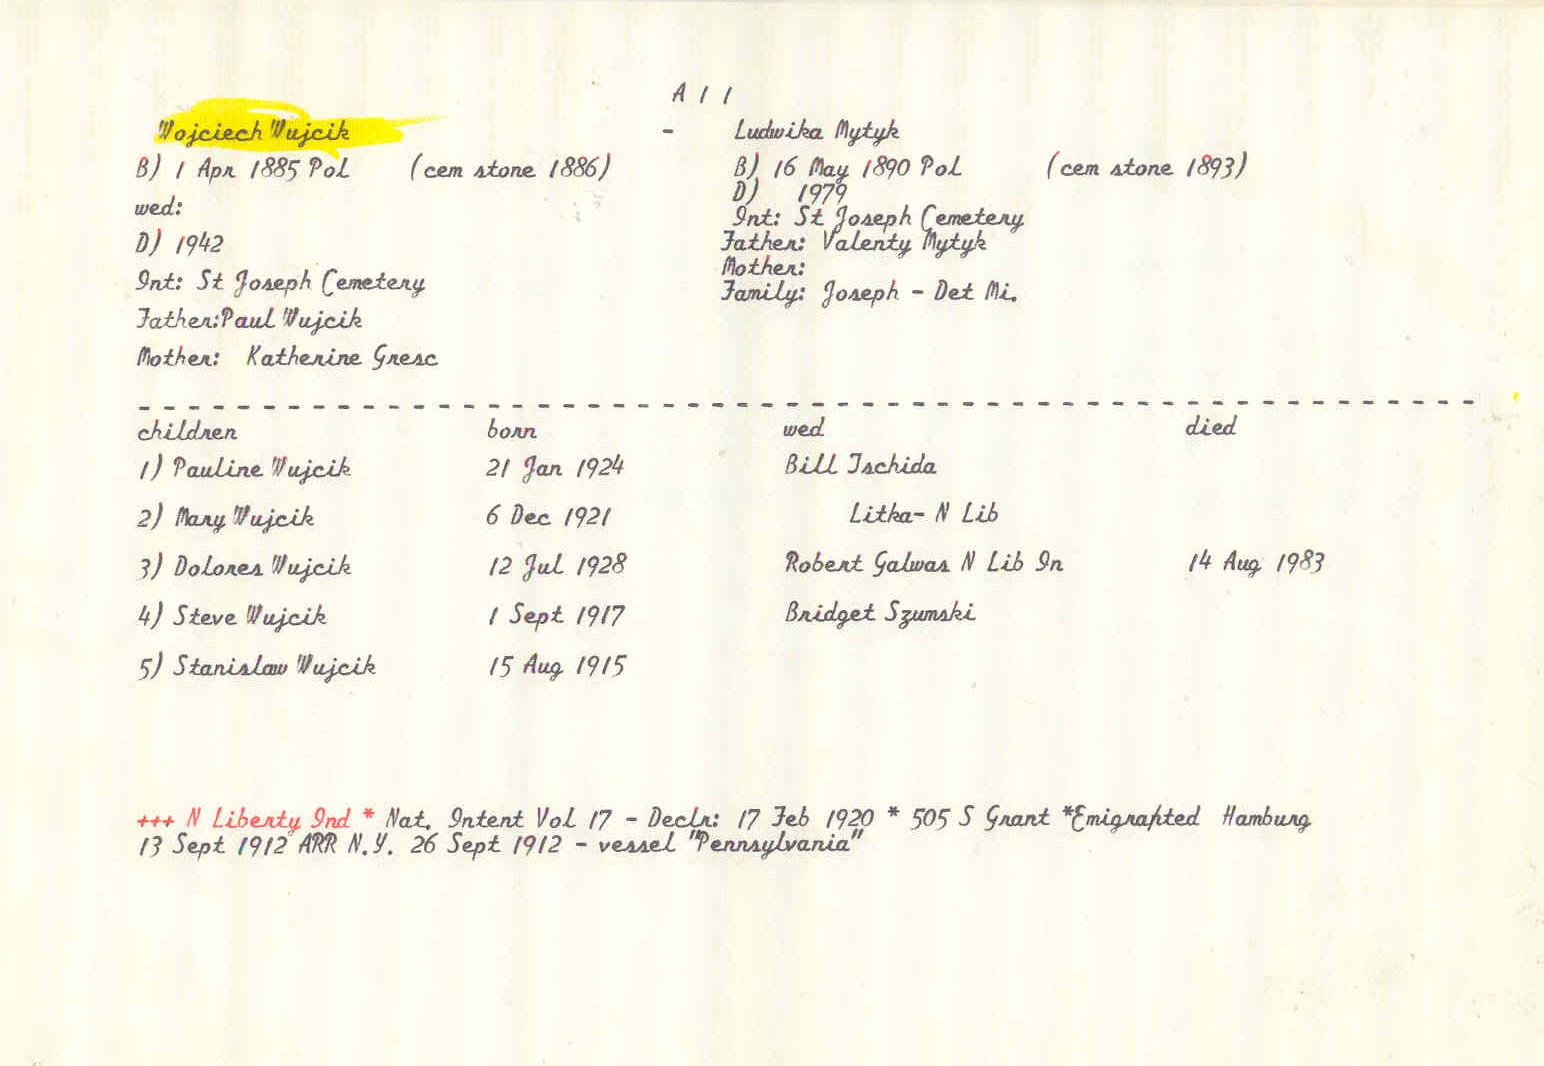 A 1 1
Wojciech Wujcik - Ludwika Mytyk
B) 1 Apr 1885 Pol (cem stone 1886) B) 16 May 1890 Pol (cem stone 1893)
D) 1979
wed:
Int: St Joseph Cemetery
D) 1942 Father: Valenty Mytyk
Mother:
Int: St Joseph Cemetery Family: Joseph - Det Mi.
Father:Paul Wujcik
Mother: Katherine Gresc
children born wed died
1) Pauline Wujcik 21 Jan 1924 Bill Ischida
2) Mary Wujcik 6 Dec 1921 Litka- N Lib
3) Dolores Wujcik 12 Jul 1928 Robert Galwas N Lib In 14 Aug 1983
4) Steve Wujcik 1 Sept 1917 Bridget Szumski
5) Stanislaw Wujcik 15 Aug 1915
+++ N Liberty Ind * Nat. Intent Vol 17 - Declr: 17 Feb 1920 * 505 S Grant *Emigrahted Hamburg
13 Sept 1912 ARR N.Y. 26 Sept 1912 - vessel "Pennsylvania"